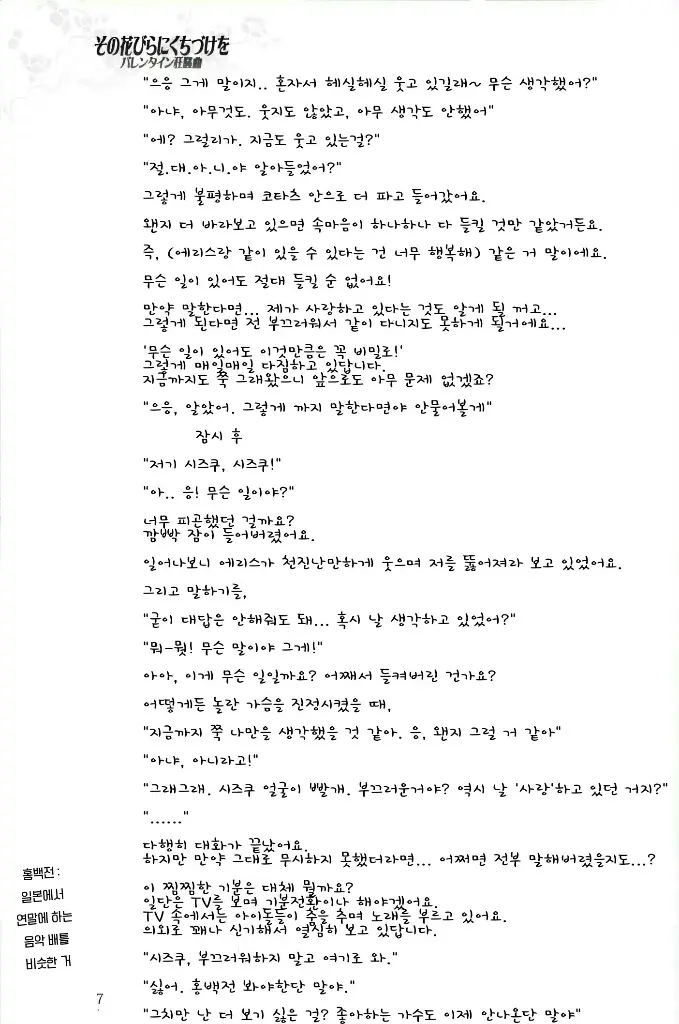 その花びらにくちづけを
バレンタイン狂騒曲
"으응 그게 말이지.. 혼자서 헤실헤실 웃고 있길래~ 무슨 생각했어?"
"아냐, 아무것도. 웃지도 않았고, 아무 생각도 안했어"
"에? 그럴리가. 지금도 웃고 있는걸?"
"절.대.아.니.야 알아들었어?"
그렇게 불평하며 코타츠 안으로 더 파고 들어갔어요.
왠지 더 바라보고 있으면 속마음이 하나하나 다 들킬 것만 같았거든요.
즉, (에리스랑 같이 있을 수 있다는 건 너무 행복해) 같은 거 말이에요.
무슨 일이 있어도 절대 들킬 순 없어요!
만약 말한다면... 제가 사랑하고 있다는 것도 알게 될 꺼고...
그렇게 된다면 전 부끄러워서 같이 다니지도 못하게 될거에요...
'무슨 일이 있어도 이것만큼은 꼭 비밀로!'
그렇게 매일매일 다짐하고 있답니다.
지금까지도 쭉 그래왔으니 앞으로도 아무 문제 없겠죠?
"으응, 알았어. 그렇게 까지 말한다면야 안물어볼게"
잠시 후
"저기 시즈쿠, 시즈쿠!"
"아.. 응! 무슨 일이야?"
너무 피곤했던 걸까요?
깜빡 잠이 들어버렸어요.
일어나보니 에리스가 천진난만하게 웃으며 저를 뚫어져라 보고 있었어요.
그리고 말하기를,
"굳이 대답은 안해줘도 돼... 혹시 날 생각하고 있었어?"
"뭐-뭣! 무슨 말이야 그게!"
아아, 이게 무슨 일일까요? 어째서 들켜버린 건가요?
어떻게든 놀란 가슴을 진정시켰을 때,
"지금까지 쭉 나만을 생각했을 것 같아. 응, 왠지 그럴 거 같아"
"아냐, 아니라고!"
"그래그래. 시즈쿠 얼굴이 빨개. 부끄러운거야? 역시 날 '사랑'하고 있던 거지?"
"......"
다행히 대화가 끝났어요.
하지만 만약 그대로 무시하지 못했더라면... 어쩌면 전부 말해버렸을지도...?
이 찜찜한 기분은 대체 뭘까요?
일단은 TV를 보며 기분전환이나 해야겠어요.
TV 속에서는 아이돌들이 춤을 추며 노래를 부르고 있어요.
의외로 꽤나 신기해서 열심히 보고 있답니다.
"시즈쿠, 부끄러워하지 말고 여기로 와."
"싫어. 홍백전 봐야한단 말야."
"그치만 난 더 보기 싫은 걸? 좋아하는 가수도 이제 안나온단 말야"
홍백전 :
일본에서
연말에 하는
음악 배틀
비슷한 거
7